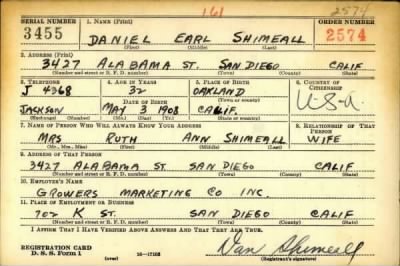 161
2574
SERIAL NUMBER 1. NAME (Print) ORDER NUMBER
3455 DANIEL EARL SHIMEALL 2574
(First) (Middle) (Last)
2. ADDRESS (Print)
3427 ALABAMA ST. SAN DIEGO CALIF
(Number and street or R. F. D. number) (Town) (County) (State)
3. TELEPHONE 4. AGE IN YEARS 5. PLACE OF BIRTH 6. COUNTRY OF CITIZENSHIP
J 4368 32 OAKLAND U.S.A.
DATE OF BIRTH (Town or county)
JACKSON MAY 3 1908 CALIF.
(Exchange) (Number) (Mo.) (Day) (Yr.) (State or country)
7. NAME OF PERSON WHO WILL ALWAYS KNOW YOUR ADDRESS 8. RELATIONSHIP OF THAT PERSON
MRS RUTH ANN SHIMEALL WIFE
(Mr., Mrs., Miss) (First) (Middle) (Last)
9. ADDRESS OF THAT PERSON
3427 ALABAMA ST. SAN DIEGO CALIF
(Number and street or R. F. D. number) (Town) (County) (State)
10. EMPLOYER'S NAME
GROWERS MARKETING CO INC.
11. PLACE OF EMPLOYMENT OR BUSINESS
702 K ST. SAN DIEGO CALIF
(Number and street or R. F. D. number) (Town) (County) (State)
I AFFIRM THAT I HAVE VERIFIED ABOVE ANSWERS AND THAT THEY ARE TRUE.
REGISTRATION CARD
D. S. S. FORM 1 Dan Shimeall
(Registrant's signature)